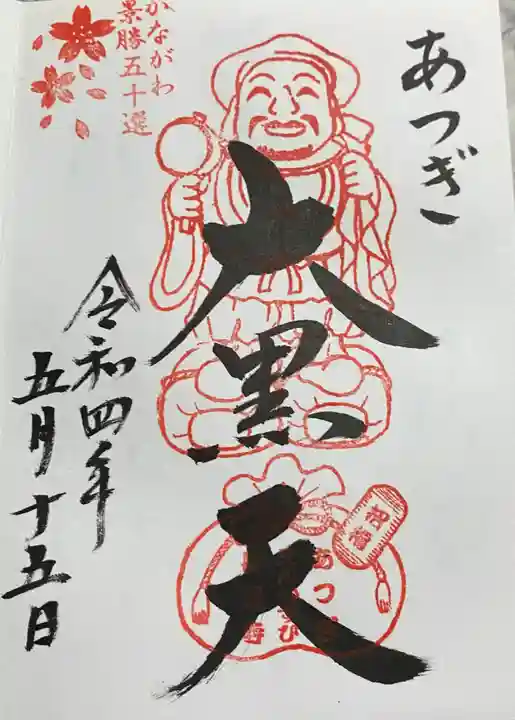 あつぎ
大黒天
令和四年
五月十五日
かながわ
景勝五十選
祝福